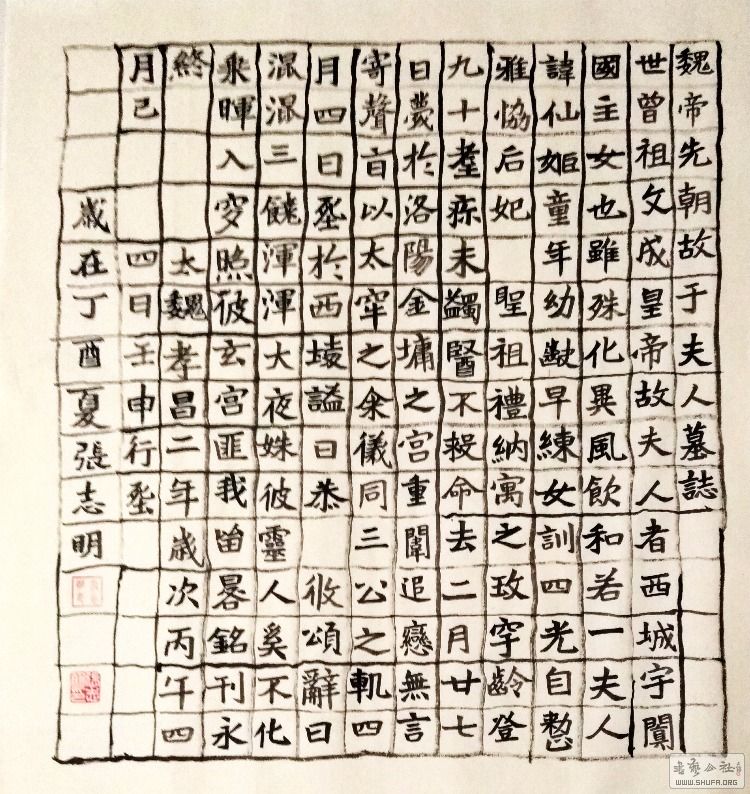 魏帝先朝故于夫人墓誌
世曾祖文成皇帝故夫人者西城宇闐
國主女也雖殊化異風飲和若一夫人
諱仙姬童年幼齔早練女訓四光自
雅協后妃 聖祖禮納寓之玫宇齡登
九十耋疹未蠲醫不命去二月廿七
日薨於洛陽金墉之宮重闈追戀無言
寄聲以太宰之儀同三公之軌四
月四日塟於西陵諡曰恭 頌辭曰
混混三饒渾渾大夜姝彼靈人奚不化
乘暉入穸照彼玄宮匪我留晷銘刊永
終 太魏孝昌二年歲次丙午四
月己 四日壬申行塟
歲在丁酉夏張志明
书艺公社
WWW.SHUFA.ORG